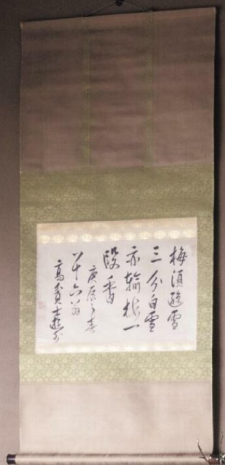 梅須遜雪
三分白雪
亦輸梅一
段香
庚辰之春
八十六
高